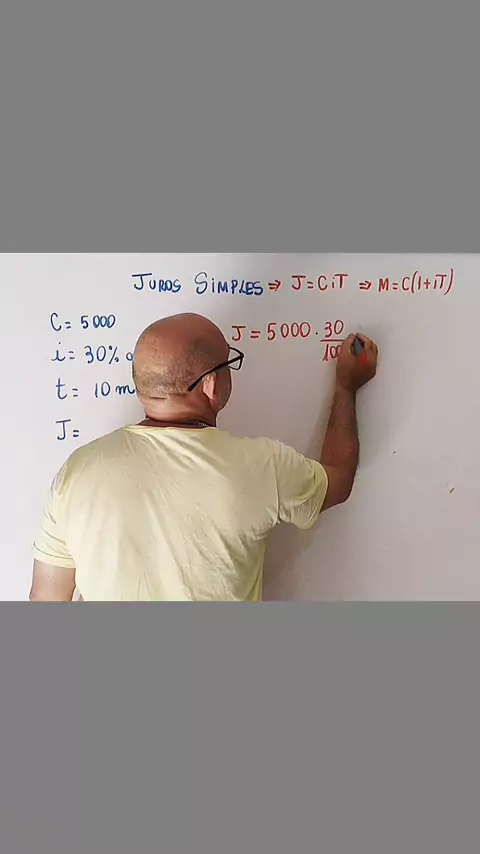 JUROS SIMPLES ⇒ J=CiT ⇒ M=C(1+iT)
C = 5000
i = 30%
t = 10 m
J =
J = 5000 · 30/100